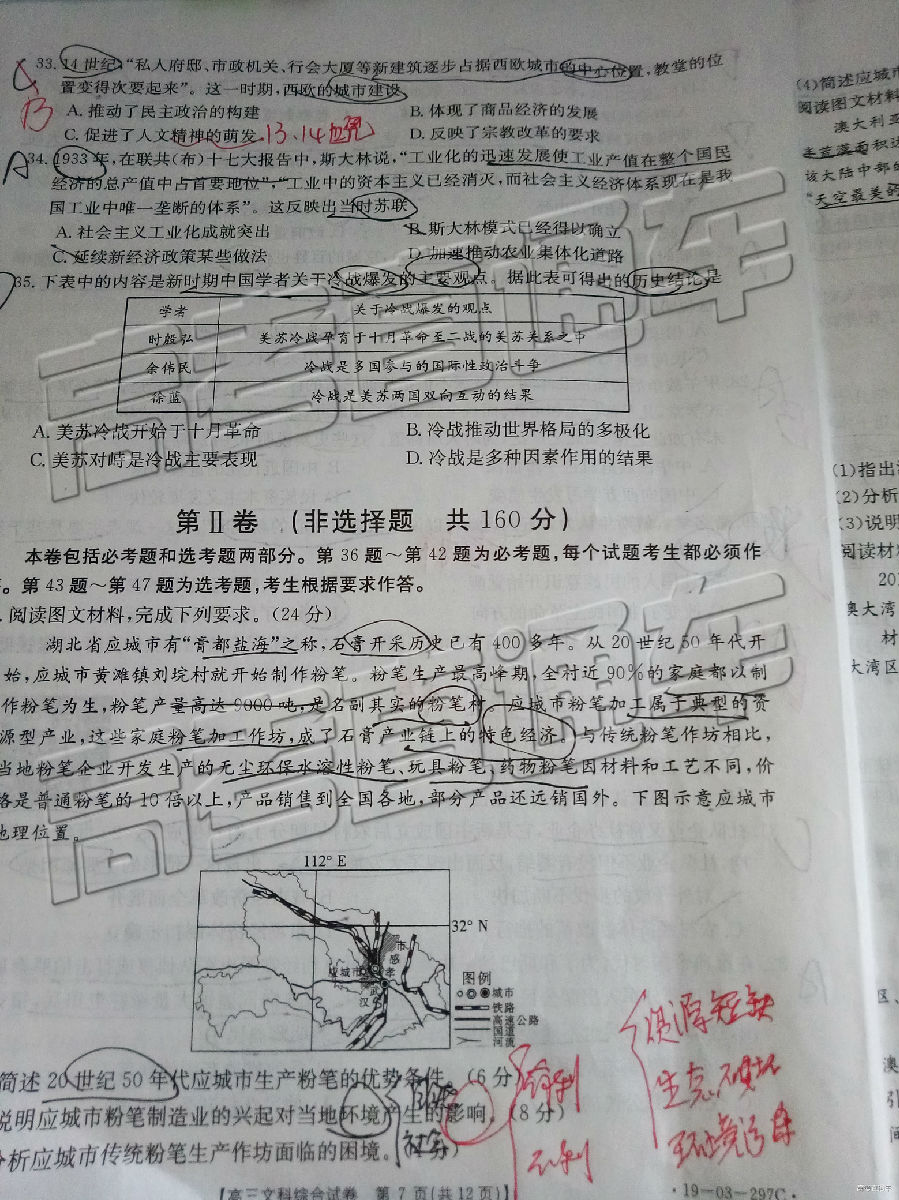 33. 14世纪,“私人府邸、市政机关、行会大厦等新建筑逐步占据西欧城市的中心位置,教堂的位
置变得次要起来”。这一时期,西欧的城市建设
A. 推动了民主政治的构建
B. 体现了商品经济的发展
C. 促进了人文精神的萌发
13、14世纪
D. 反映了宗教改革的要求
B
A
34. 1933年,在联共(布)十七大报告中,斯大林说,“工业化的迅速发展使工业产值在整个国民
经济的总产值中占首要地位”,“工业中的资本主义已经消灭,而社会主义经济体系现在是我
国工业中唯一垄断的体系”。这反映出当时苏联
A. 社会主义工业化成就突出
B. 斯大林模式已经得以确立
C. 延续新经济政策某些做法
D. 加速推动农业集体化道路
35. 下表中的内容是新时期中国学者关于冷战爆发的主要观点。据此表可得出的历史结论是
学者 关于冷战爆发的观点
时殷弘 美苏冷战孕育于十月革命至二战的美苏关系之中
余伟民 冷战是多国参与的国际性政治斗争
徐蓝 冷战是美苏两国双向互动的结果
A. 美苏冷战开始于十月革命
B. 冷战推动世界格局的多极化
C. 美苏对峙是冷战主要表现
D. 冷战是多种因素作用的结果
第Ⅱ卷 (非选择题 共160分)
本卷包括必考题和选考题两部分。第36题~第42题为必考题,每个试题考生都必须作
。第43题~第47题为选考题,考生根据要求作答。
. 阅读图文材料,完成下列要求。(24分)
湖北省应城市有“膏都盐海”之称,石膏开采历史已有400多年。从20世纪50年代开
始,应城市黄滩镇刘垸村就开始制作粉笔。粉笔生产最高峰期,全村近90%的家庭都以制
作粉笔为生,粉笔产量高达9000吨,是名副其实的粉笔村。应城市粉笔加工属于典型的资
源型产业,这些家庭粉笔加工作坊,成了石膏产业链上的特色经济。与传统粉笔作坊相比,
当地粉笔企业开发生产的无尘环保水溶性粉笔、玩具粉笔、药物粉笔因材料和工艺不同,价
格是普通粉笔的10倍以上,产品销售到全国各地,部分产品还远销国外。下图示意应城市
地理位置。
112° E
32° N
应城市
孝
感
市
武
汉
图例
城市
铁路
高速公路
国道
河流
简述20世纪50年代应城市生产粉笔的优势条件。(6分)
说明应城市粉笔制造业的兴起对当地环境产生的影响。(8分)
分析应城市传统粉笔生产作坊面临的困境。
社会
有利
不利
资源短缺
生态破坏
环境污染
【高三文科综合试卷 第7页(共12页)】
·19-03-297C·
(4)简述应城市
阅读图文材料
澳大利亚
该大陆中部的
“天空最美的
(1)指出
(2)分析
(3)说明
阅读材
澳大湾
材
大湾区
区、
澳
高考直通车
高考直通车